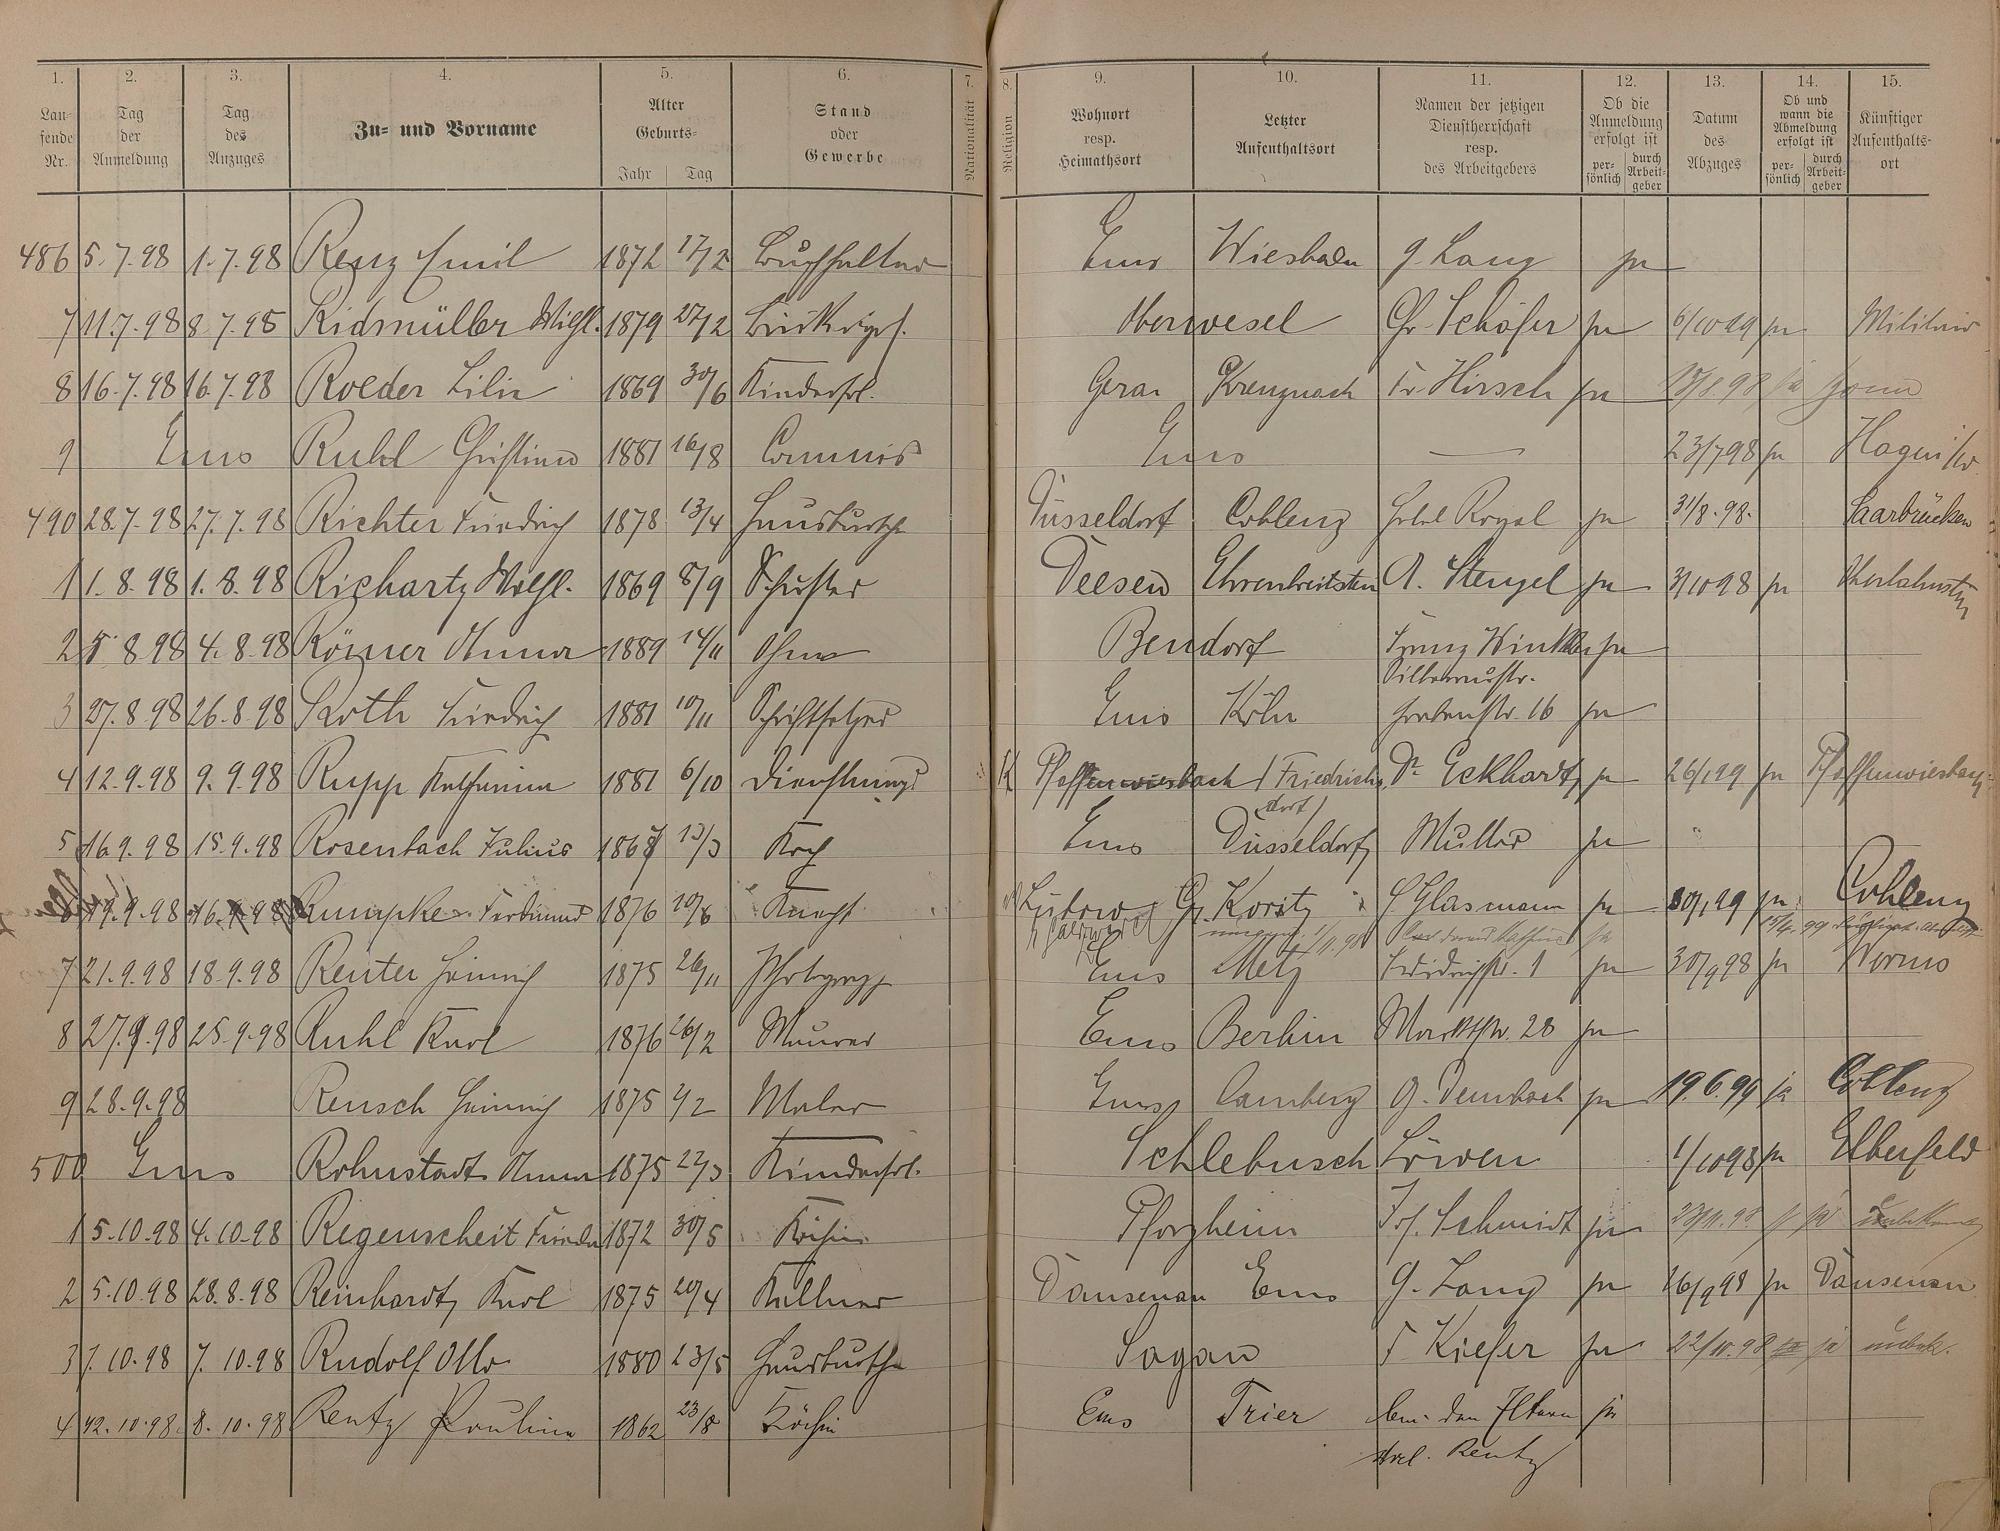 1. 2. 3. 4. 5. 6. 7. 8. 9. 10. 11. 12. 13. 14. 15.
Laufende Nr. Tag der Anmeldung Tag des Anzuges Zu- und Vorname Alter Geburts- Jahr Tag Stand oder Gewerbe Nationalität Religion Wohnort resp. Heimathsort Letzter Aufenthaltsort Namen der jetzigen Dienstherrschaft resp. des Arbeitgebers Ob die Anmeldung erfolgt ist persönlich durch Arbeitgeber Datum des Abzuges Ob und wann die Abmeldung erfolgt ist persönlich durch Arbeitgeber Künftiger Aufenthaltsort
486 5.7.98 1.7.98 Renz Emil 1872 17/2 Buchhalter Ems Wiesbaden G. Lang ja
7 11.7.98 8.7.98 Ridmüller Wilh. 1879 27/2 Oberwesel Chr. Schäfer ja 6/10 99 ja Militair
8 16.7.98 16.7.98 Roeder Lilie 1869 30/6 Kinderfrl. Gera Kreuznach Fr. Hirsch ja
9 Ems Ruhl Christian 1881 16/8 Commis Ems — 23/7 98 ja Hagen i/W
490 28.7.98 27.7.98 Richter Friedrich 1878 13/4 Hausbursche Düsseldorf Coblenz Hotel Royal ja 31/8.98. Saarbrücken
1 1.8.98 1.8.98 Richartz Wilh. 1869 8/9 Schuster Deesen Ehrenbreitstein A. Stengel ja 3/10 98 ja Oberlahnstein
2 5.8.98 4.8.98 Römer Anna 1889 14/11 Ohne Bendorf Franz Winkler ja
Silberaustr.
3 27.8.98 26.8.98 Roth Friedrich 1881 10/11 Schriftsetzer Ems Köln Grabenstr. 16 ja
4 12.9.98 9.9.98 Rupp Katharina 1881 6/10 Dienstmagd K Pfaffenwiesbach / Friedrichs Dr. Eckhardt ja 26/1 99 ja Pfaffenwiesbach
dorf)
5 16.9.98 15.9.98 Rosenbach Julius 1867 13/3 Koch Ems Düsseldorf Müller ja
6 17.9.98 16.9.98 Rumpke Ferdinand 1876 10/6 Knecht Koritz Glasmann ja 30/1 99 ja Coblenz
7 21.9.98 18.9.98 Reuter Heinrich 1875 26/11 Photograph Ems Metz Friedrichstr. 1 ja 30/9 98 ja Worms
8 27.9.98 25.9.98 Ruhl Karl 1876 26/2 Maurer Ems Berlin Marktstr. 28 ja
9 28.9.98 Reusch Heinrich 1875 2/2 Maler Ems Camberg G. Dembach ja 19.6.99 ja Coblenz
500 Ems Rohnstadt Anna 1875 22/3 Kinderfrl. Schlebusch Löwen 1/10 98 ja Elberfeld
1 5.10.98 4.10.98 Regenscheit Frieda 1872 30/5 Köchin Pforzheim Jos. Schmidt ja 23/11.98 ja unbekannt
2 5.10.98 28.8.98 Reinhardt Karl 1875 20/4 Kellner Dausenau Ems G. Lang ja 26/9 98 ja Dausenau
3 7.10.98 7.10.98 Rudolf Otto 1880 23/5 Hausbursche Sagan F. Kiefer ja 22/10.98 ja unbek.
4 12.10.98 8.10.98 Rentz Paulina 1862 23/8 Köchin Ems Trier bei den Eltern ja
Rentz